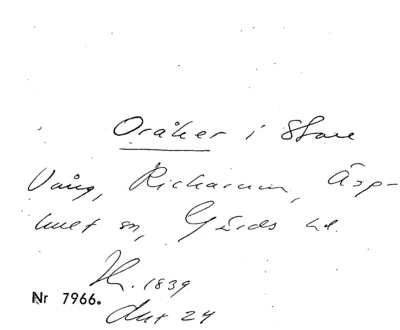 Oråker i Stora
Vång, Richarum, Äsp-
hult sn, Gärds hd.
H. 1839
Nr 7966.
Akt 24